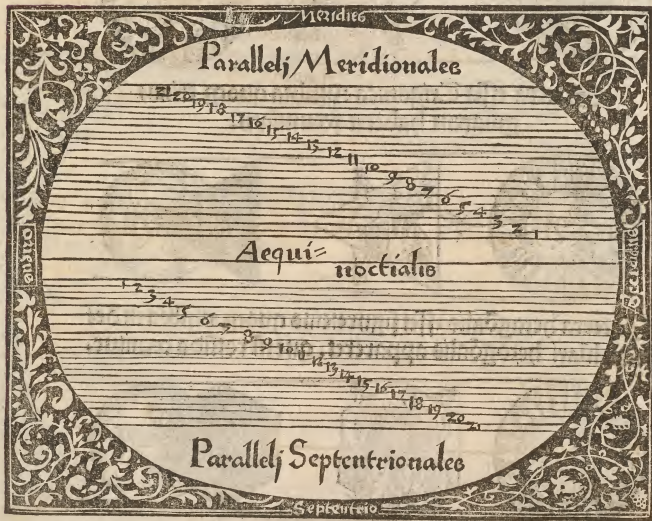 Meridies
Parallelj Meridionales
21 20 19 18 17 16 15 14 13 12 11 10 9 8 7 6 5 4 3 2 1
Oriens
Aequi=
noctialis
Occidens
1 2 3 4 5 6 7 8 9 10 11 12 13 14 15 16 17 18 19 20 21
Parallelj Septentrionales
Septentrio